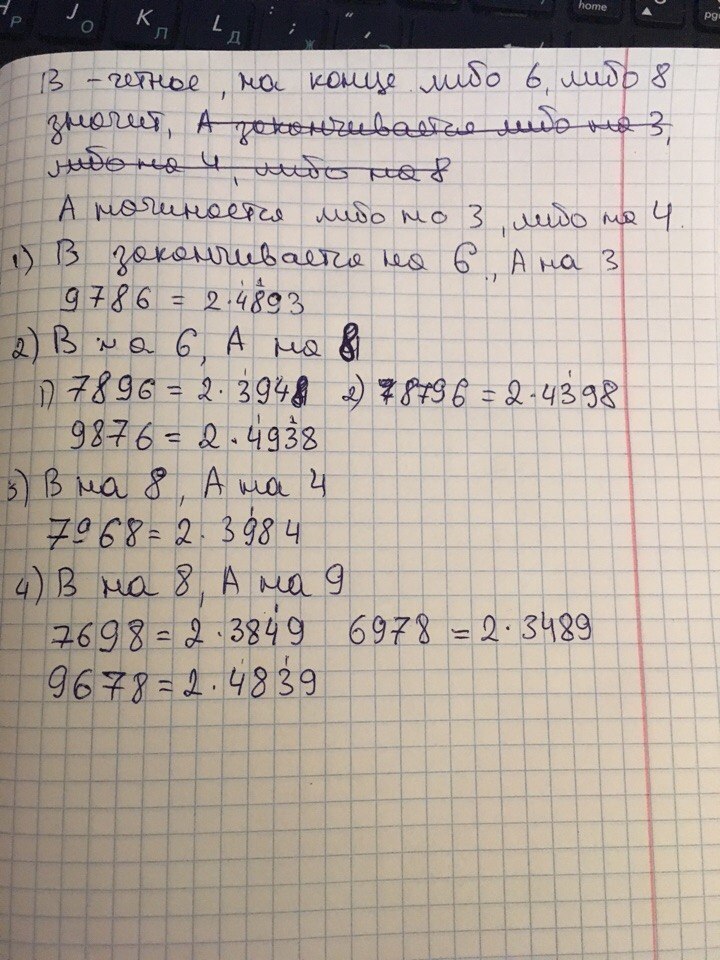 Р J О К Л L Д : ; Ж " , home pg
В – четное, на конце либо 6, либо 8
значит, А заканчивается либо на 3,
либо на 4, либо на 8
А начинается либо на 3, либо на 4.
1) В заканчивается на 6, А на 3
9786 = 2·4893
2) В на 6, А на 8
1) 7896 = 2·3948 2) 8796 = 2·4398
9876 = 2·4938
3) В на 8, А на 4
7968 = 2·3984
4) В на 8, А на 9
7698 = 2·3849 6978 = 2·3489
9678 = 2·4839